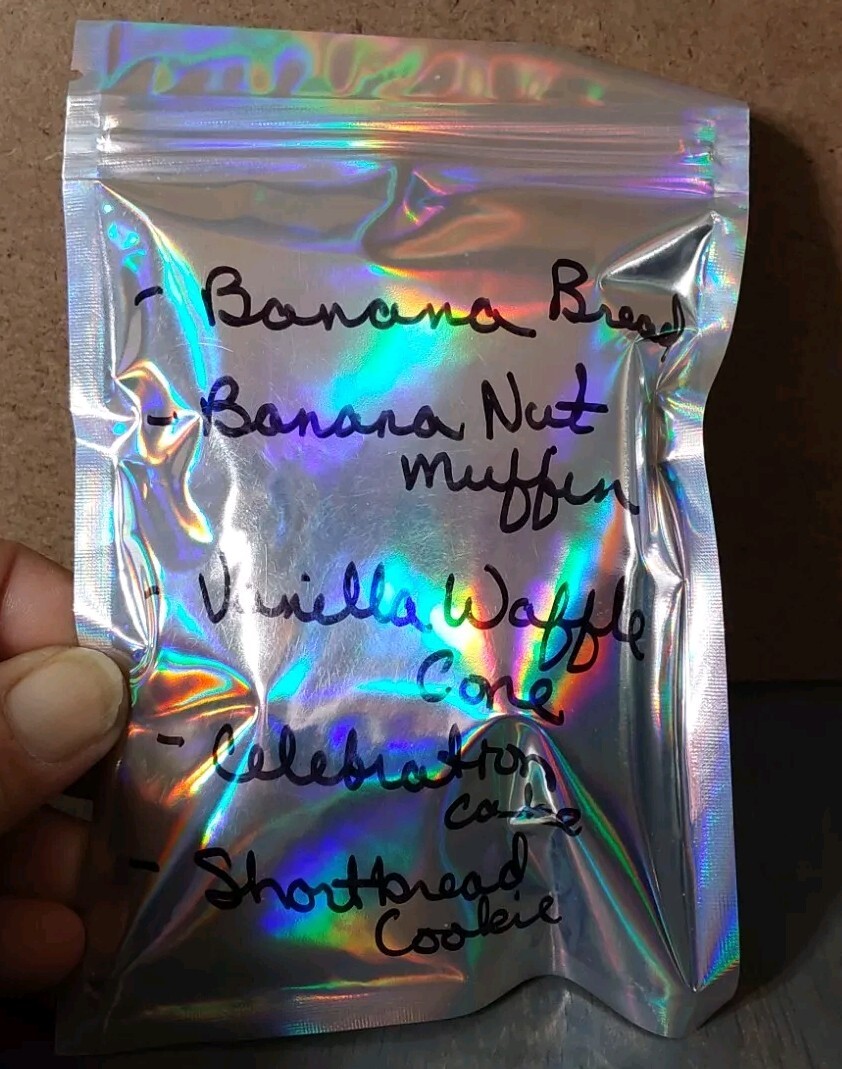 - Banana Bread
- Banana Nut
Muffin
- Vanilla Waffle
Cone
- Celebration
cake
- Shortbread
Cookie